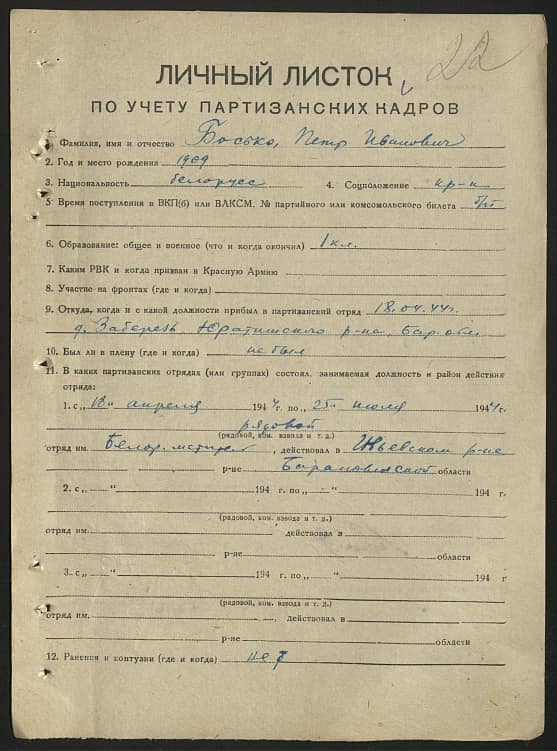 22
ЛИЧНЫЙ ЛИСТОК
ПО УЧЕТУ ПАРТИЗАНСКИХ КАДРОВ
1. Фамилия, имя и отчество Босько, Петр Иванович
2. Год и место рождения 1909
3. Национальность белорусс 4. Соцположение кр-н
5. Время поступления в ВКП(б) или ВЛКСМ, № партийного или комсомольского билета б/п
6. Образование: общее и военное (что и когда окончил) 1 кл.
7. Каким РВК и когда призван в Красную Армию
8. Участие на фронтах (где и когда)
9. Откуда, когда и с какой должности прибыл в партизанский отряд 18.04.44г.
д. Заберезь Юратишского р-на, Бар. обл
10. Был ли в плену (где и когда) не был
11. В каких партизанских отрядах (или группах) состоял, занимаемая должность и район действия
отряда:
1. с „18“ апреля 1944 г. по „25“ июля 1944 г.
рядовой
(рядовой, ком. взвода и т. д.)
отряд им. Белор. , действовал в Ивьевском р-не
р-не Барановичской области
2. с „ “ 194 г. по „ “ 194 г.
(рядовой, ком. взвода и т. д.)
отряд им. действовал в
р-не области
3. с „ “ 194 г. по „ “ 194 г
(рядовой, ком. взвода и т. д.)
отряд им. , действовал в
р-не области
12. Ранения и контузии (где и когда) нет